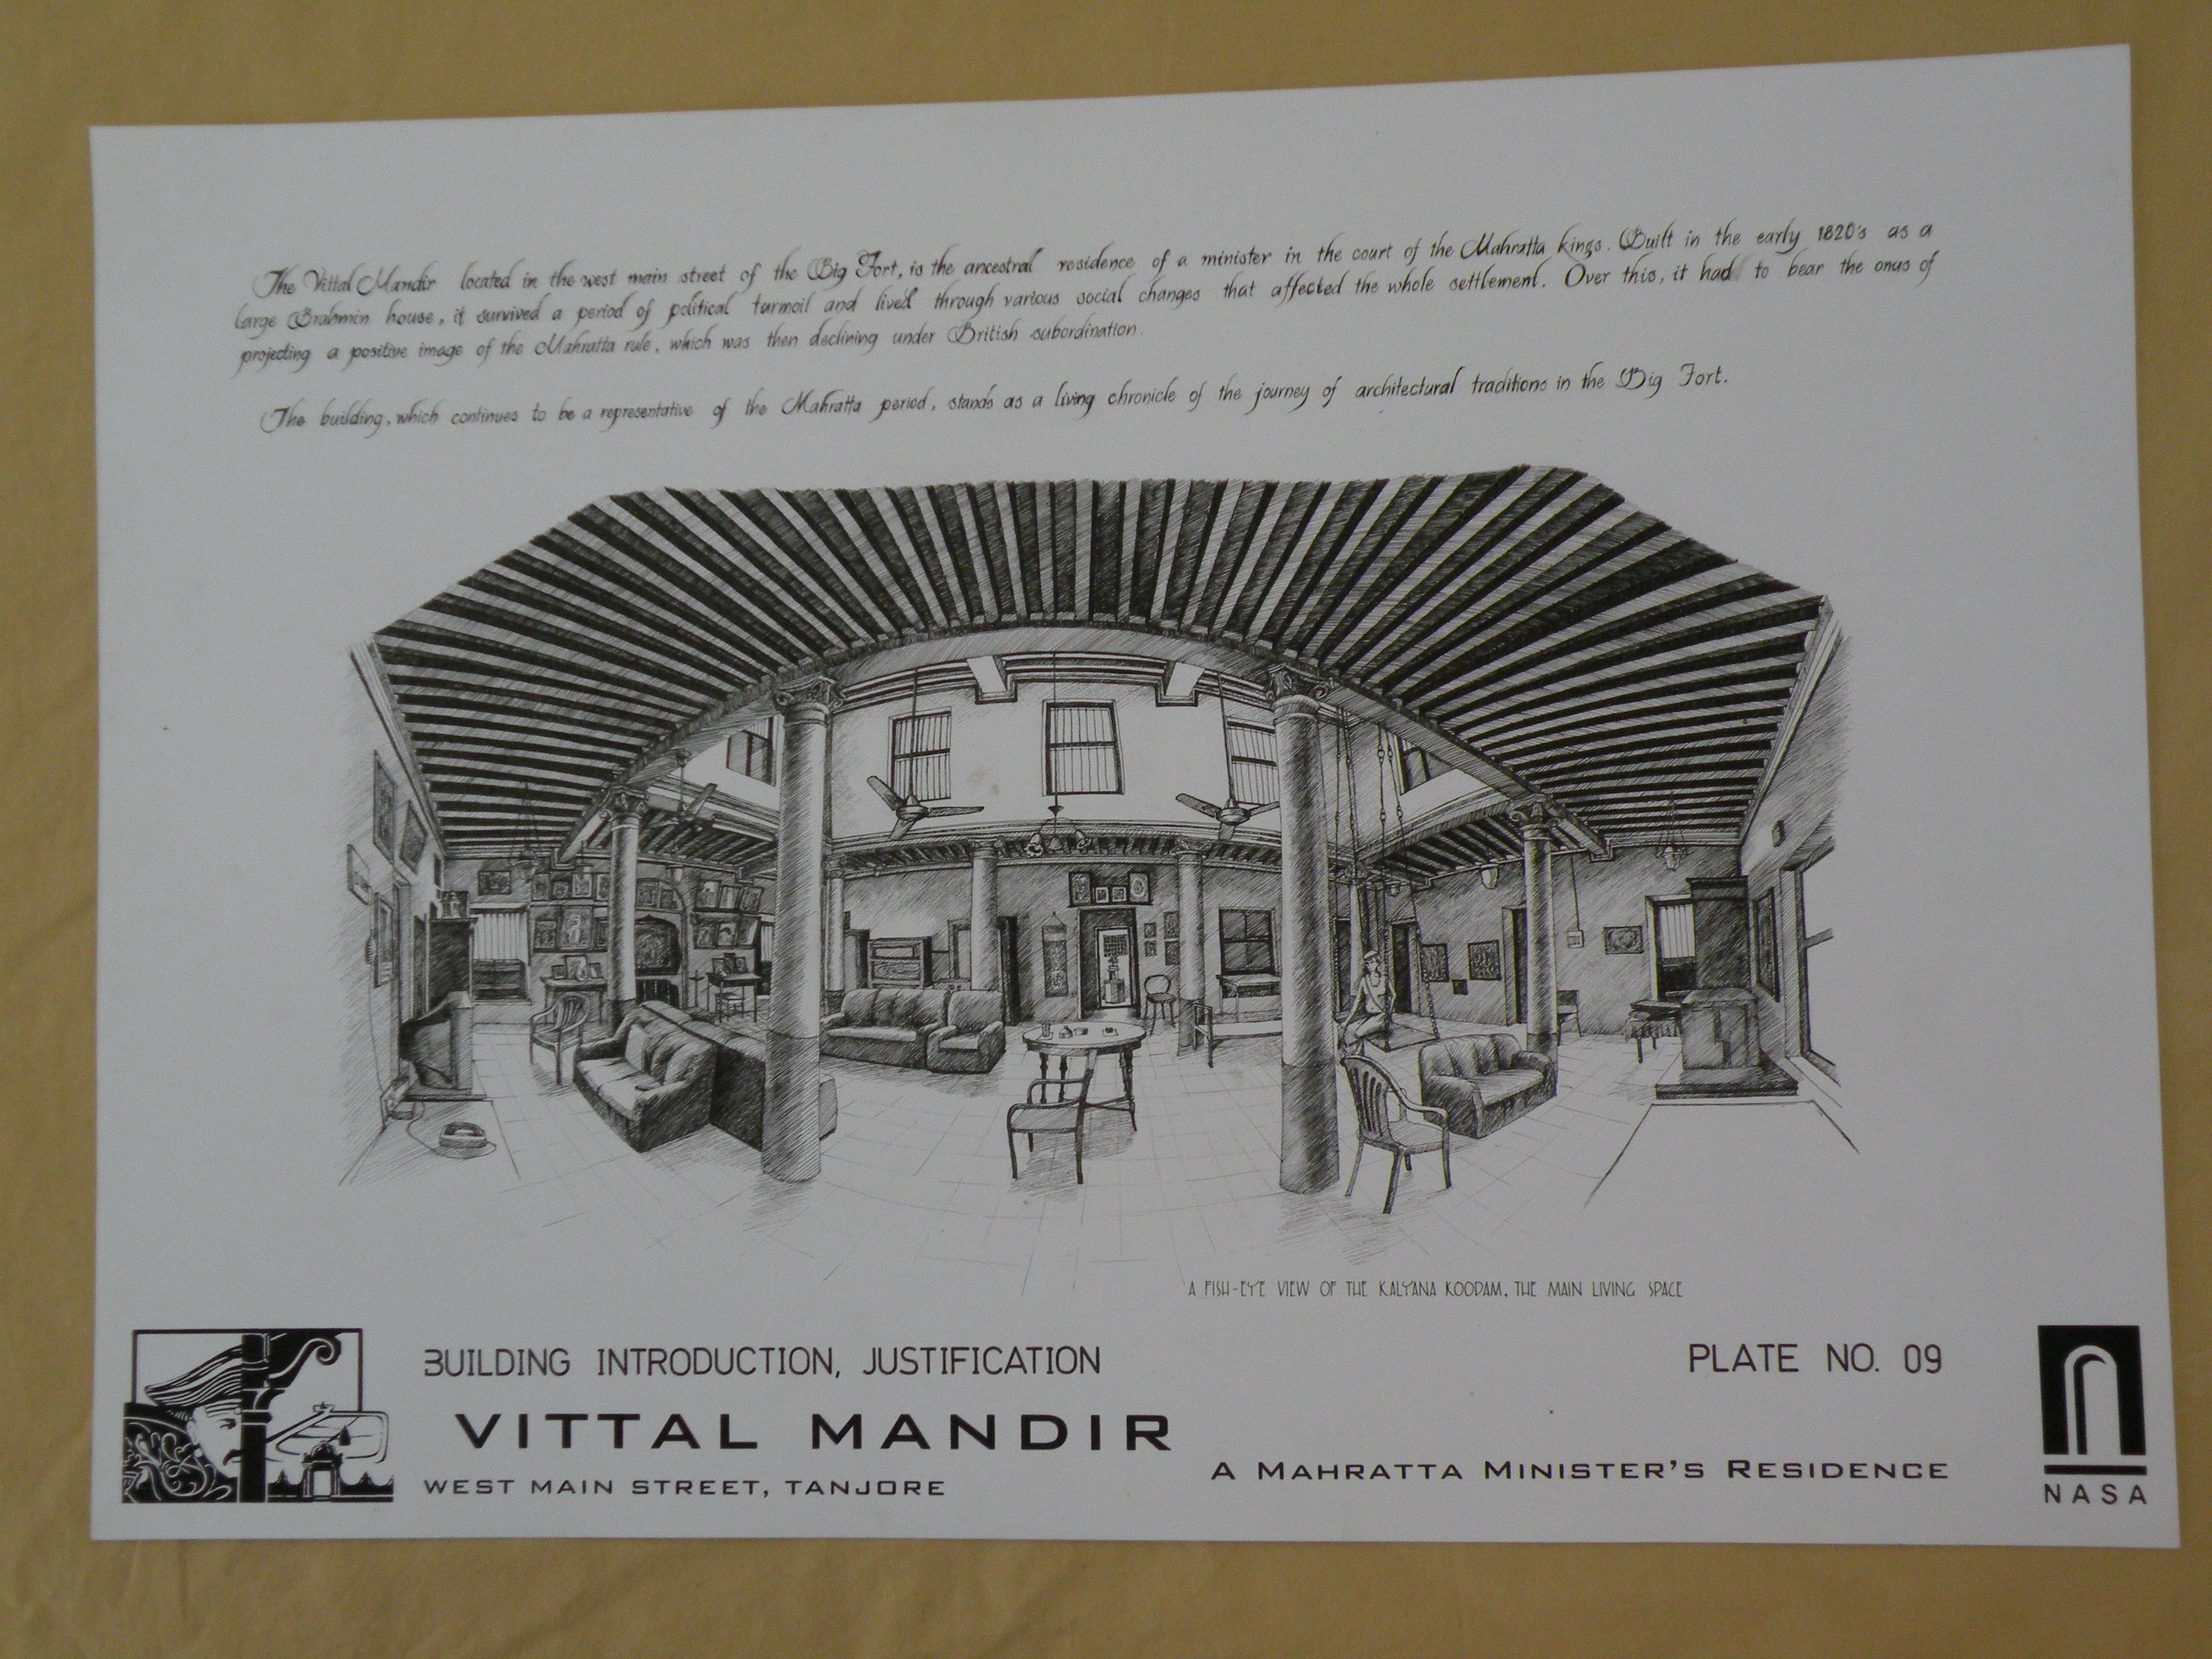 The Vittal Mandir located in the west main street of the Big Fort, is the ancestral residence of a minister in the court of the Mahratta kings. Built in the early 1820's as a
large Brahmin house, it survived a period of political turmoil and lived through various social changes that affected the whole settlement. Over this, it had to bear the onus of
projecting a positive image of the Mahratta rule, which was then declining under British subordination.
The building, which continues to be a representative of the Mahratta period, stands as a living chronicle of the journey of architectural traditions in the Big Fort.
A FISH-EYE VIEW OF THE KALYANA KOODAM, THE MAIN LIVING SPACE
BUILDING INTRODUCTION, JUSTIFICATION
PLATE NO. 09
VITTAL MANDIR
WEST MAIN STREET, TANJORE
A MAHRATTA MINISTER'S RESIDENCE
NASA